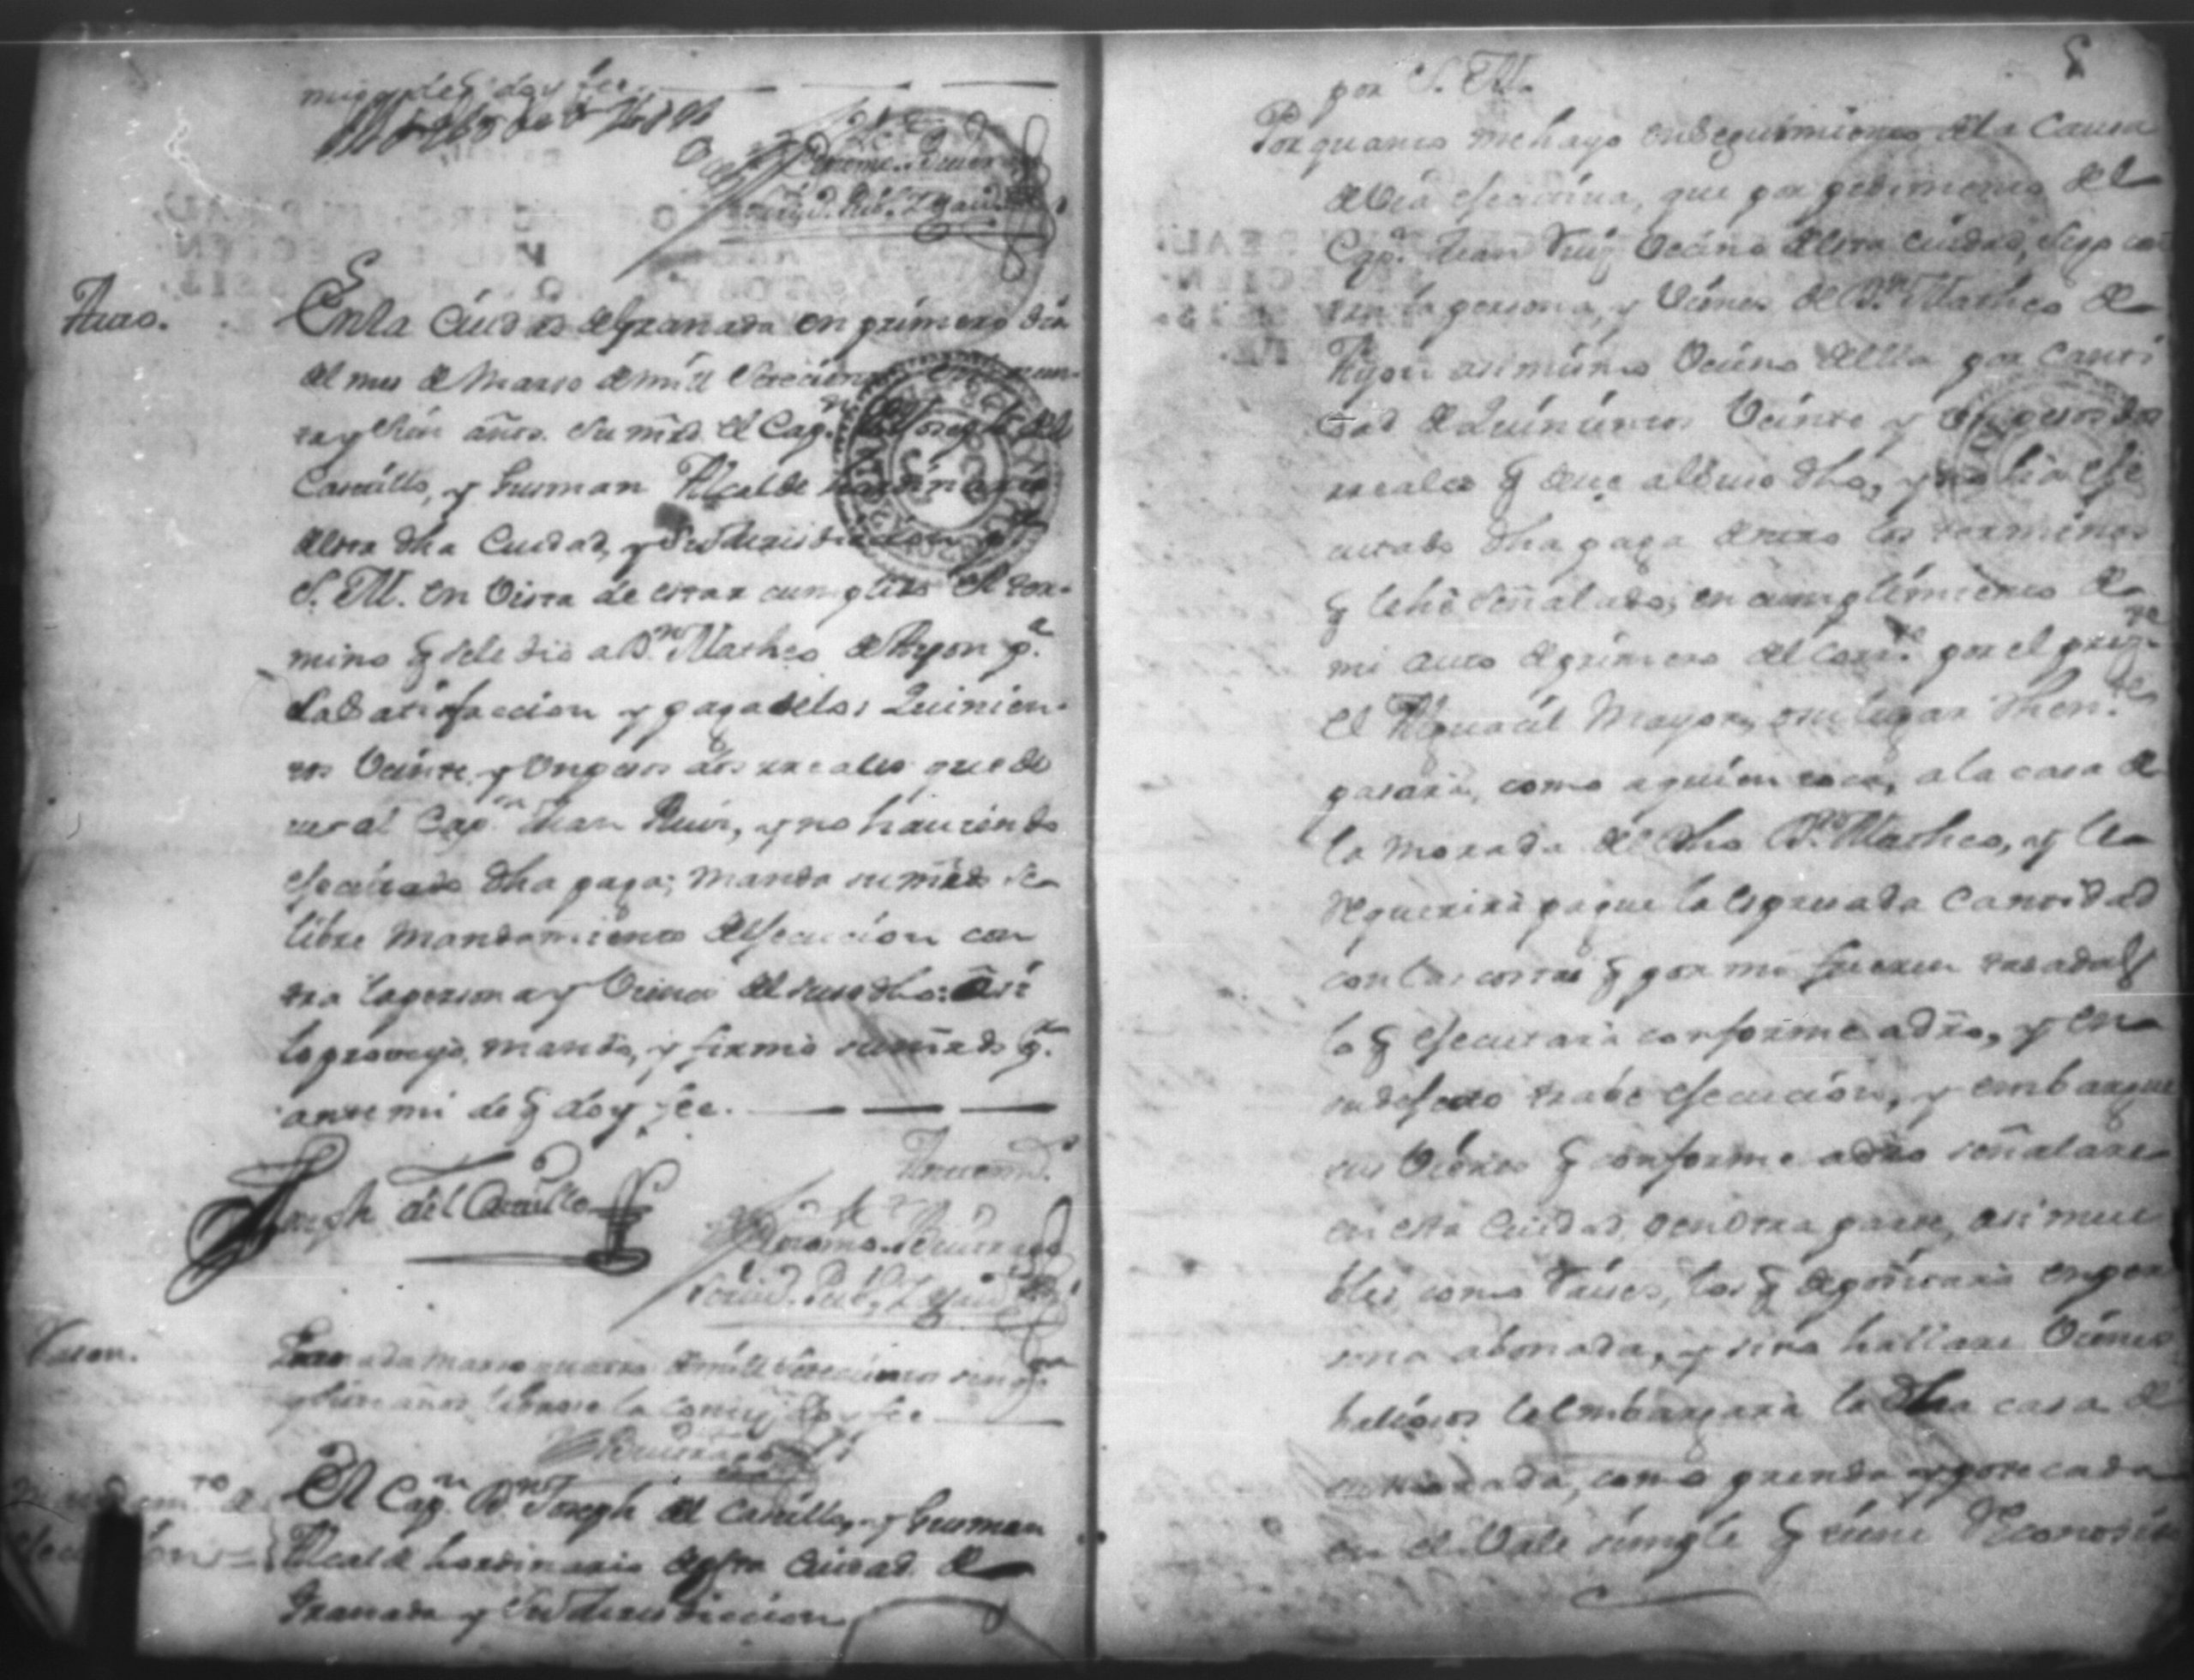 mi, de q doy fee.
Auto.
En la Ciudad de Granada en primero dia
del mes de Marzo de mill Setecientos
ta y Siete años. Su mrd. el Cap.n Dn Joseph del
Castillo, y Gusman Alcalde hordinario
desta dha Ciudad, y Su Jurisdiccion por
S. M. en Vista de estar cumplido el ter-
mino q sele dio a Dn. Matheo de Ayon p.a
la Satisfaccion y paga delos Quinien-
tos Veinte y Un pesos dos rreales que de
ve al Cap.n Juan Ruiz, y no haviendo
efecutado dha paga; manda su mrd. se
libre Mandamiento de efecucion con
tra la persona y Vienes del susodho: Asi
lo proveyo, mando, y firmo su mrd. p.r
ante mi de q doy fee.
Joseph del Castillo
Ante mi
Scriv.o Pub.
Razon.
Granada Marzo quatro de mill Setecientos sinq.ta
y Siete años, libróse la doy fee
Mandam.to de
efecucion
El Cap.n Dn Joseph del Castillo, y Gusman
Alcalde hordinario desta Ciudad de
Granada y Su Jurisdiccion
por S. M.
Por quanto me hayo en Seguimiento de la Causa
de Via efecutiva, que por pedimento del
Cap.n Juan Ruiz Vecino desta Ciudad, sigo con
tra la persona, y Vienes de Dn Matheo de
Ayon asimismo Vecino della por Canti
dad de Quinientos Veinte y Un pesos dos
rreales q deve al Suso dho, y no ha efe
cutado dha paga dentro los terminos
q le he señalado; en cumplimiento de
mi auto de primero del corr.te por el pres.te
el Alguacil Mayor, o su lugar Then.te
pasará, como a quien toca, a la casa de
la morada del dho Dn Matheo, y le
Requerirá pague la espresada Cantidad
con las costas q por mi fueren tasadas
lo q efecutará conforme a dro, y en
su defecto trabe efecucion, y embargue
sus Vienes q conforme a dro señalare
en esta Ciudad, o en otra parte, asi mue
bles como Raises, los q depositará en per
sona abonada, y si no hallare Vienes
valiosos le embargará la dha casa de
su morada, como prenda ypotecada
en el Vale simple q tiene Reconosido